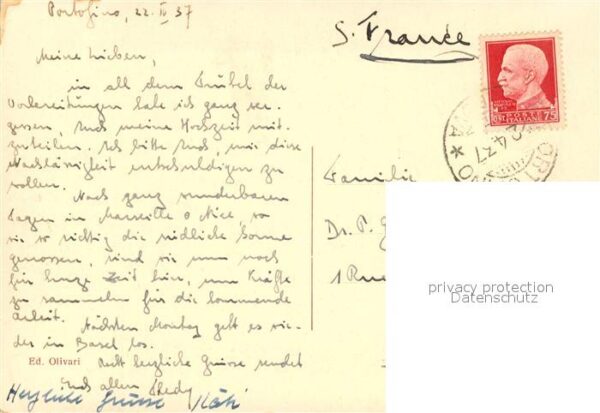 Portofino, 22. IV 37
Meine Lieben,
in all dem Trubel der
Vorbereitungen habe ich ganz ver-
gessen, Euch meine Hochzeit mit-
zuteilen. Ich bitte Euch, mir diese
Nachlässigkeit entschuldigen zu
wollen.
Nach ganz wunderbaren
Tagen in Marseille & Nice, wo
wir so richtig die südliche Sonne
genossen, sind wir nun noch
für kurze Zeit hier, um Kräfte
zu sammeln für die kommende
Arbeit. Nächsten Montag geht es wie-
der in Basel los.
Recht herzliche Grüsse sendet
Euch allen Hedy
Herzliche Grüsse
Ed. Olivari
S. France
POSTE ITALIANE
75
24.37
Familie
Dr. P.
1 Rue
privacy protection
Datenschutz